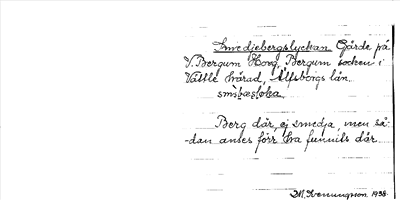 Smedjebergslyckan Gärde på
V. Bergum Hoog, Bergum socken i
Vättle härad, Älfsborgs län.
smìbæsløka
Berg där, ej smedja, men så-
-dan anses förr ha funnits där.
M. Svenungson 1938.